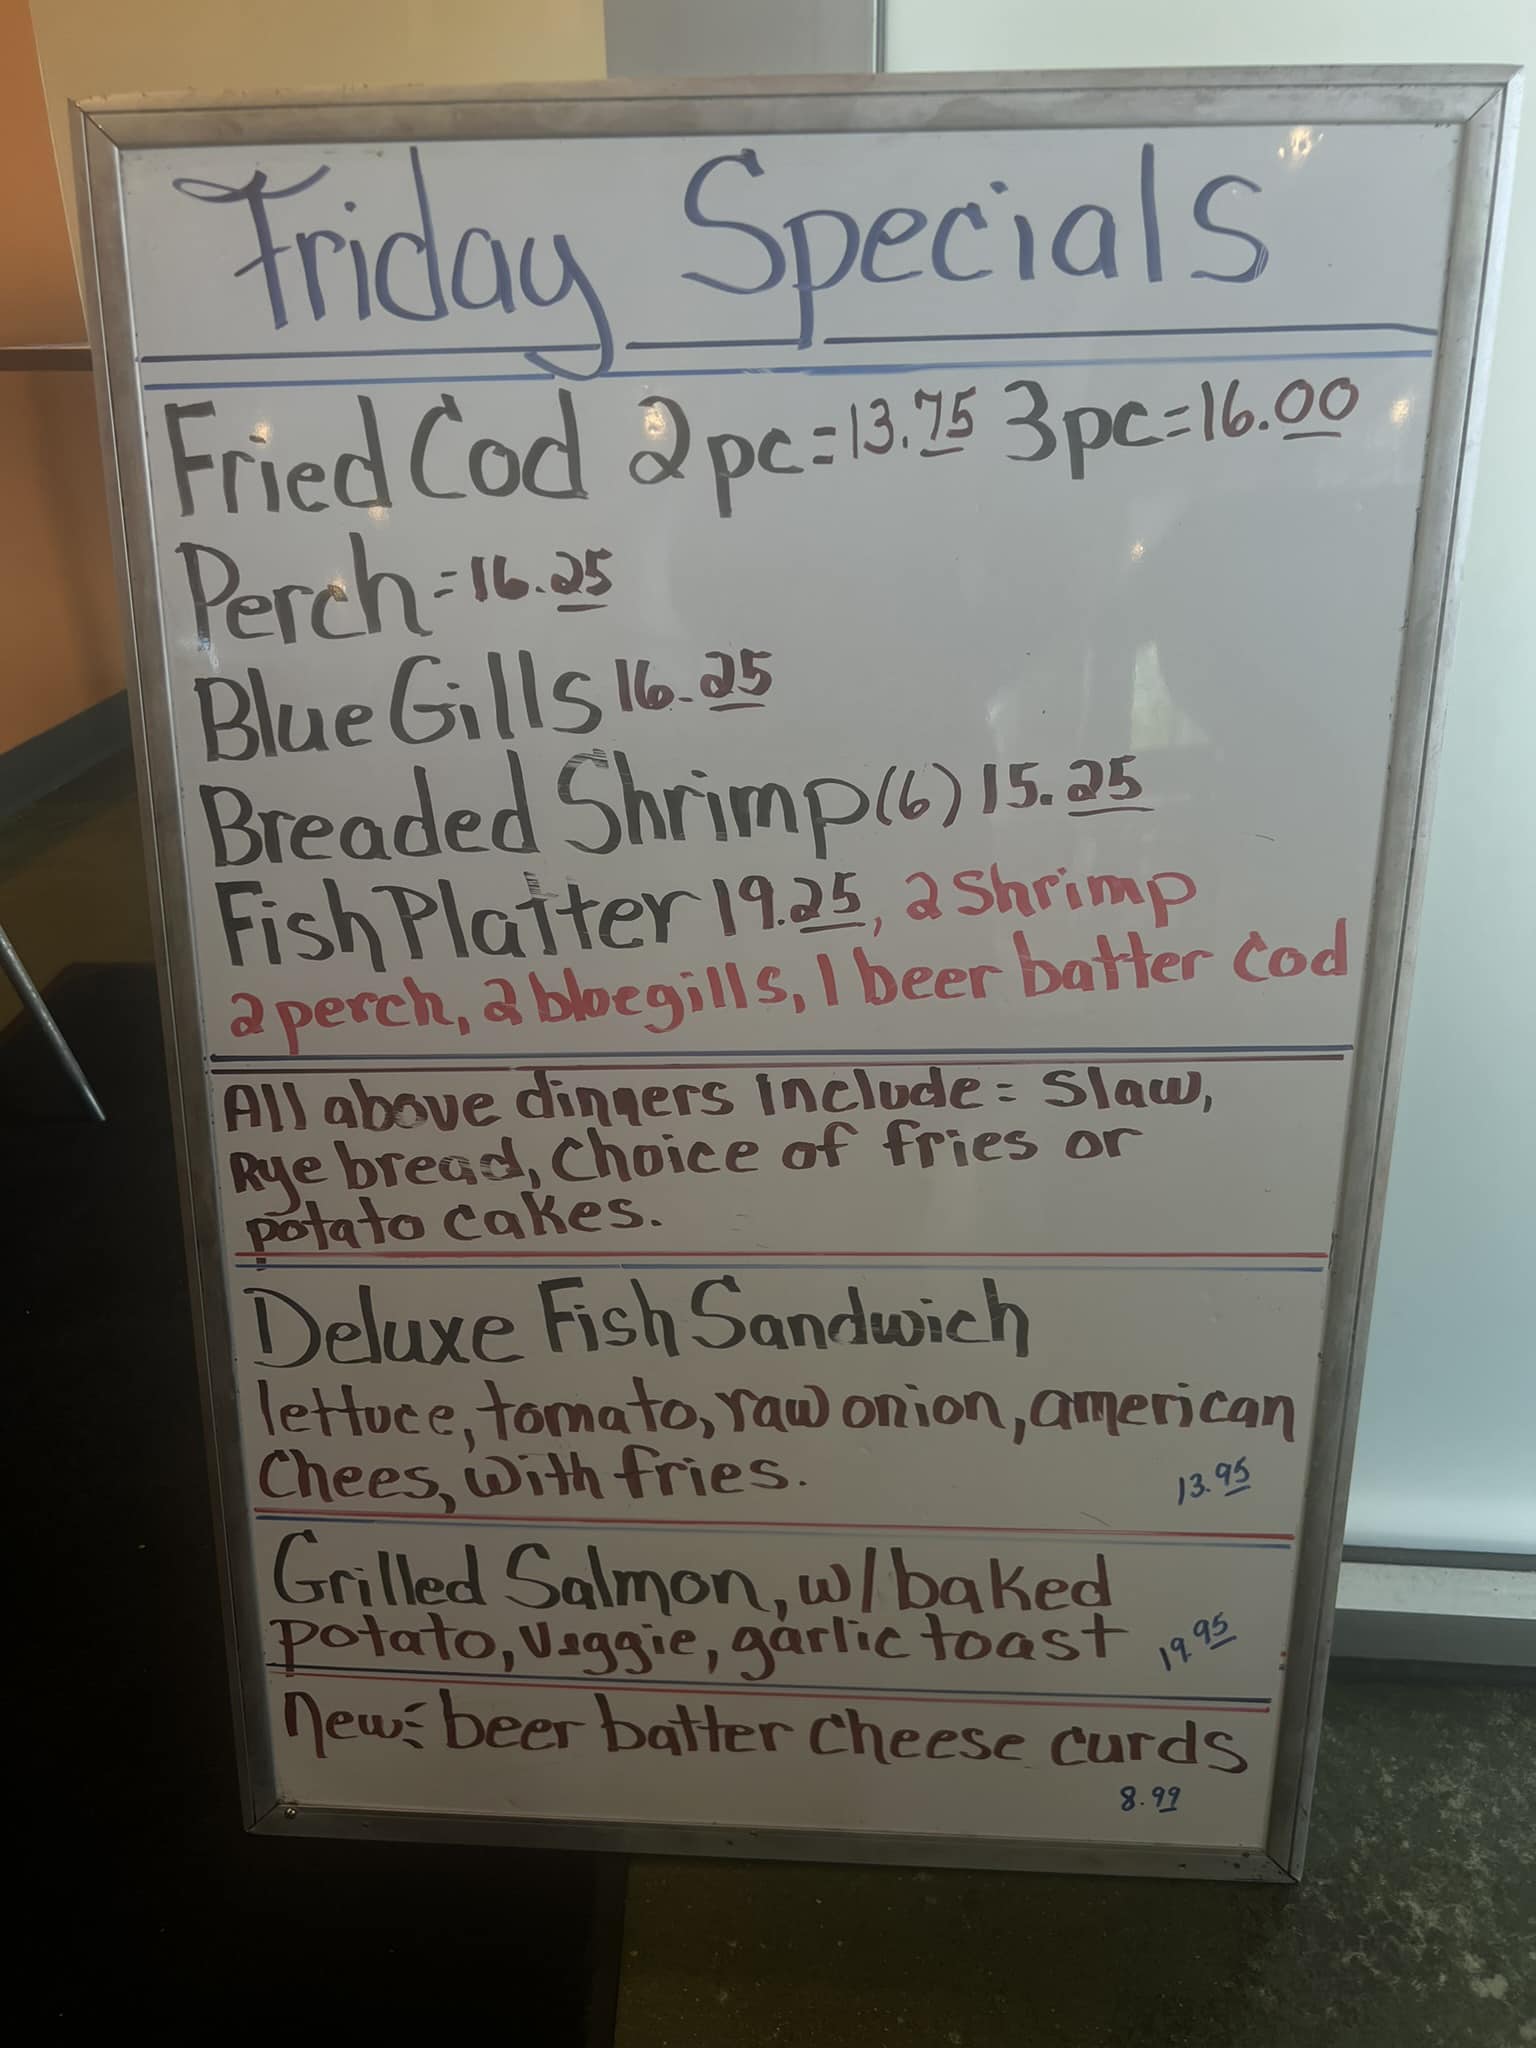 Friday Specials
Fried Cod 2pc=13.75 3pc=16.00
Perch=16.25
Blue Gills 16.25
Breaded Shrimp (6) 15.25
Fish Platter 19.25, 2 Shrimp
2 perch, 2 bluegills, 1 beer batter Cod
All above dinners include= Slaw,
Rye bread, Choice of fries or
potato cakes.
Deluxe Fish Sandwich
lettuce, tomato, raw onion, american
Chees, with fries. 13.95
Grilled Salmon, w/baked
potato, Veggie, garlic toast 19.95
New: beer batter cheese curds
8.99